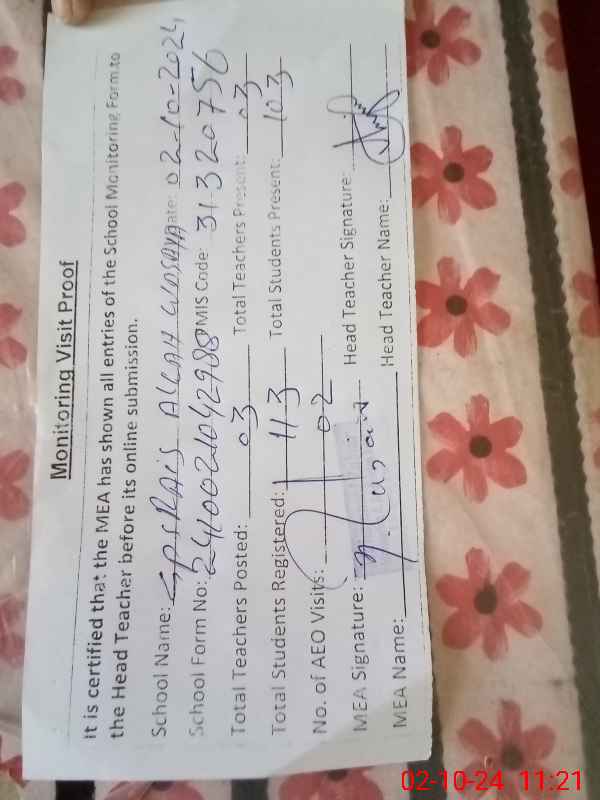 Monitoring Visit Proof
It is certified that the MEA has shown all entries of the School Monitoring Form to
the Head Teacher before its online submission.
School Name: GPS RAIS ALLAH WOSAYA Date: 02-10-2024
School Form No: 2410021042988 EMIS Code: 31320756
Total Teachers Posted: 03 Total Teachers Present: 03
Total Students Registered: 113 Total Students Present: 103
No. of AEO Visits: 02
MEA Signature: Head Teacher Signature:
MEA Name: Head Teacher Name:
02-10-24 11:21